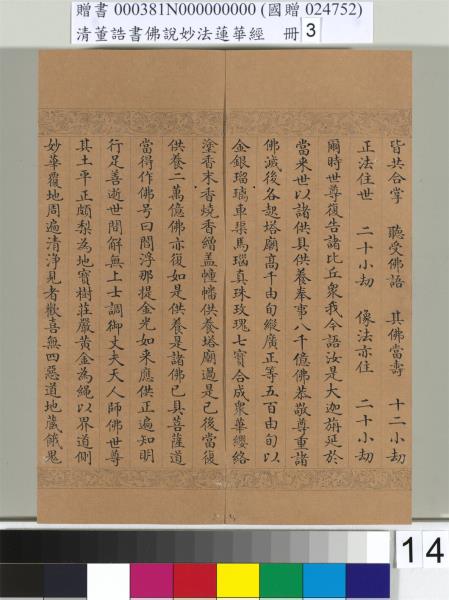 贈書 000381N000000000 (國贈 024752)
清董誥書佛說妙法蓮華經 冊 3
皆共合掌 聽受佛語 其佛當壽 十二小劫
正法住世 二十小劫 像法亦住 二十小劫
爾時世尊復告諸比丘衆我今語汝是大迦旃延於
當来世以諸供具供養奉事八千億佛恭敬尊重諸
佛滅後各起塔廟高千由旬縱廣正等五百由旬以
金銀瑠璃車渠馬瑙真珠玫瑰七寶合成衆華纓絡
塗香末香燒香繒盖幢幡供養塔廟過是已後當復
供養二萬億佛亦復如是供養是諸佛已具菩薩道
當得作佛号曰閻浮那提金光如来應供正遍知明
行足善逝世間解無上士調御丈夫天人師佛世尊
其土平正頗梨為地寶樹莊嚴黃金為繩以界道側
妙華覆地周遍清淨見者歡喜無四惡道地獄餓鬼
14